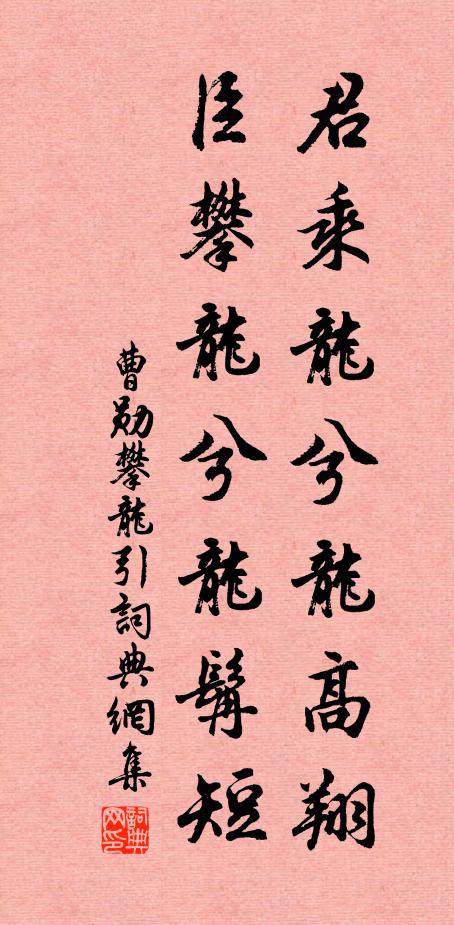 君乘龍兮龍高翔
臣攀龍兮龍髯短
曹勛攀龍引詞典網集
詞典網印